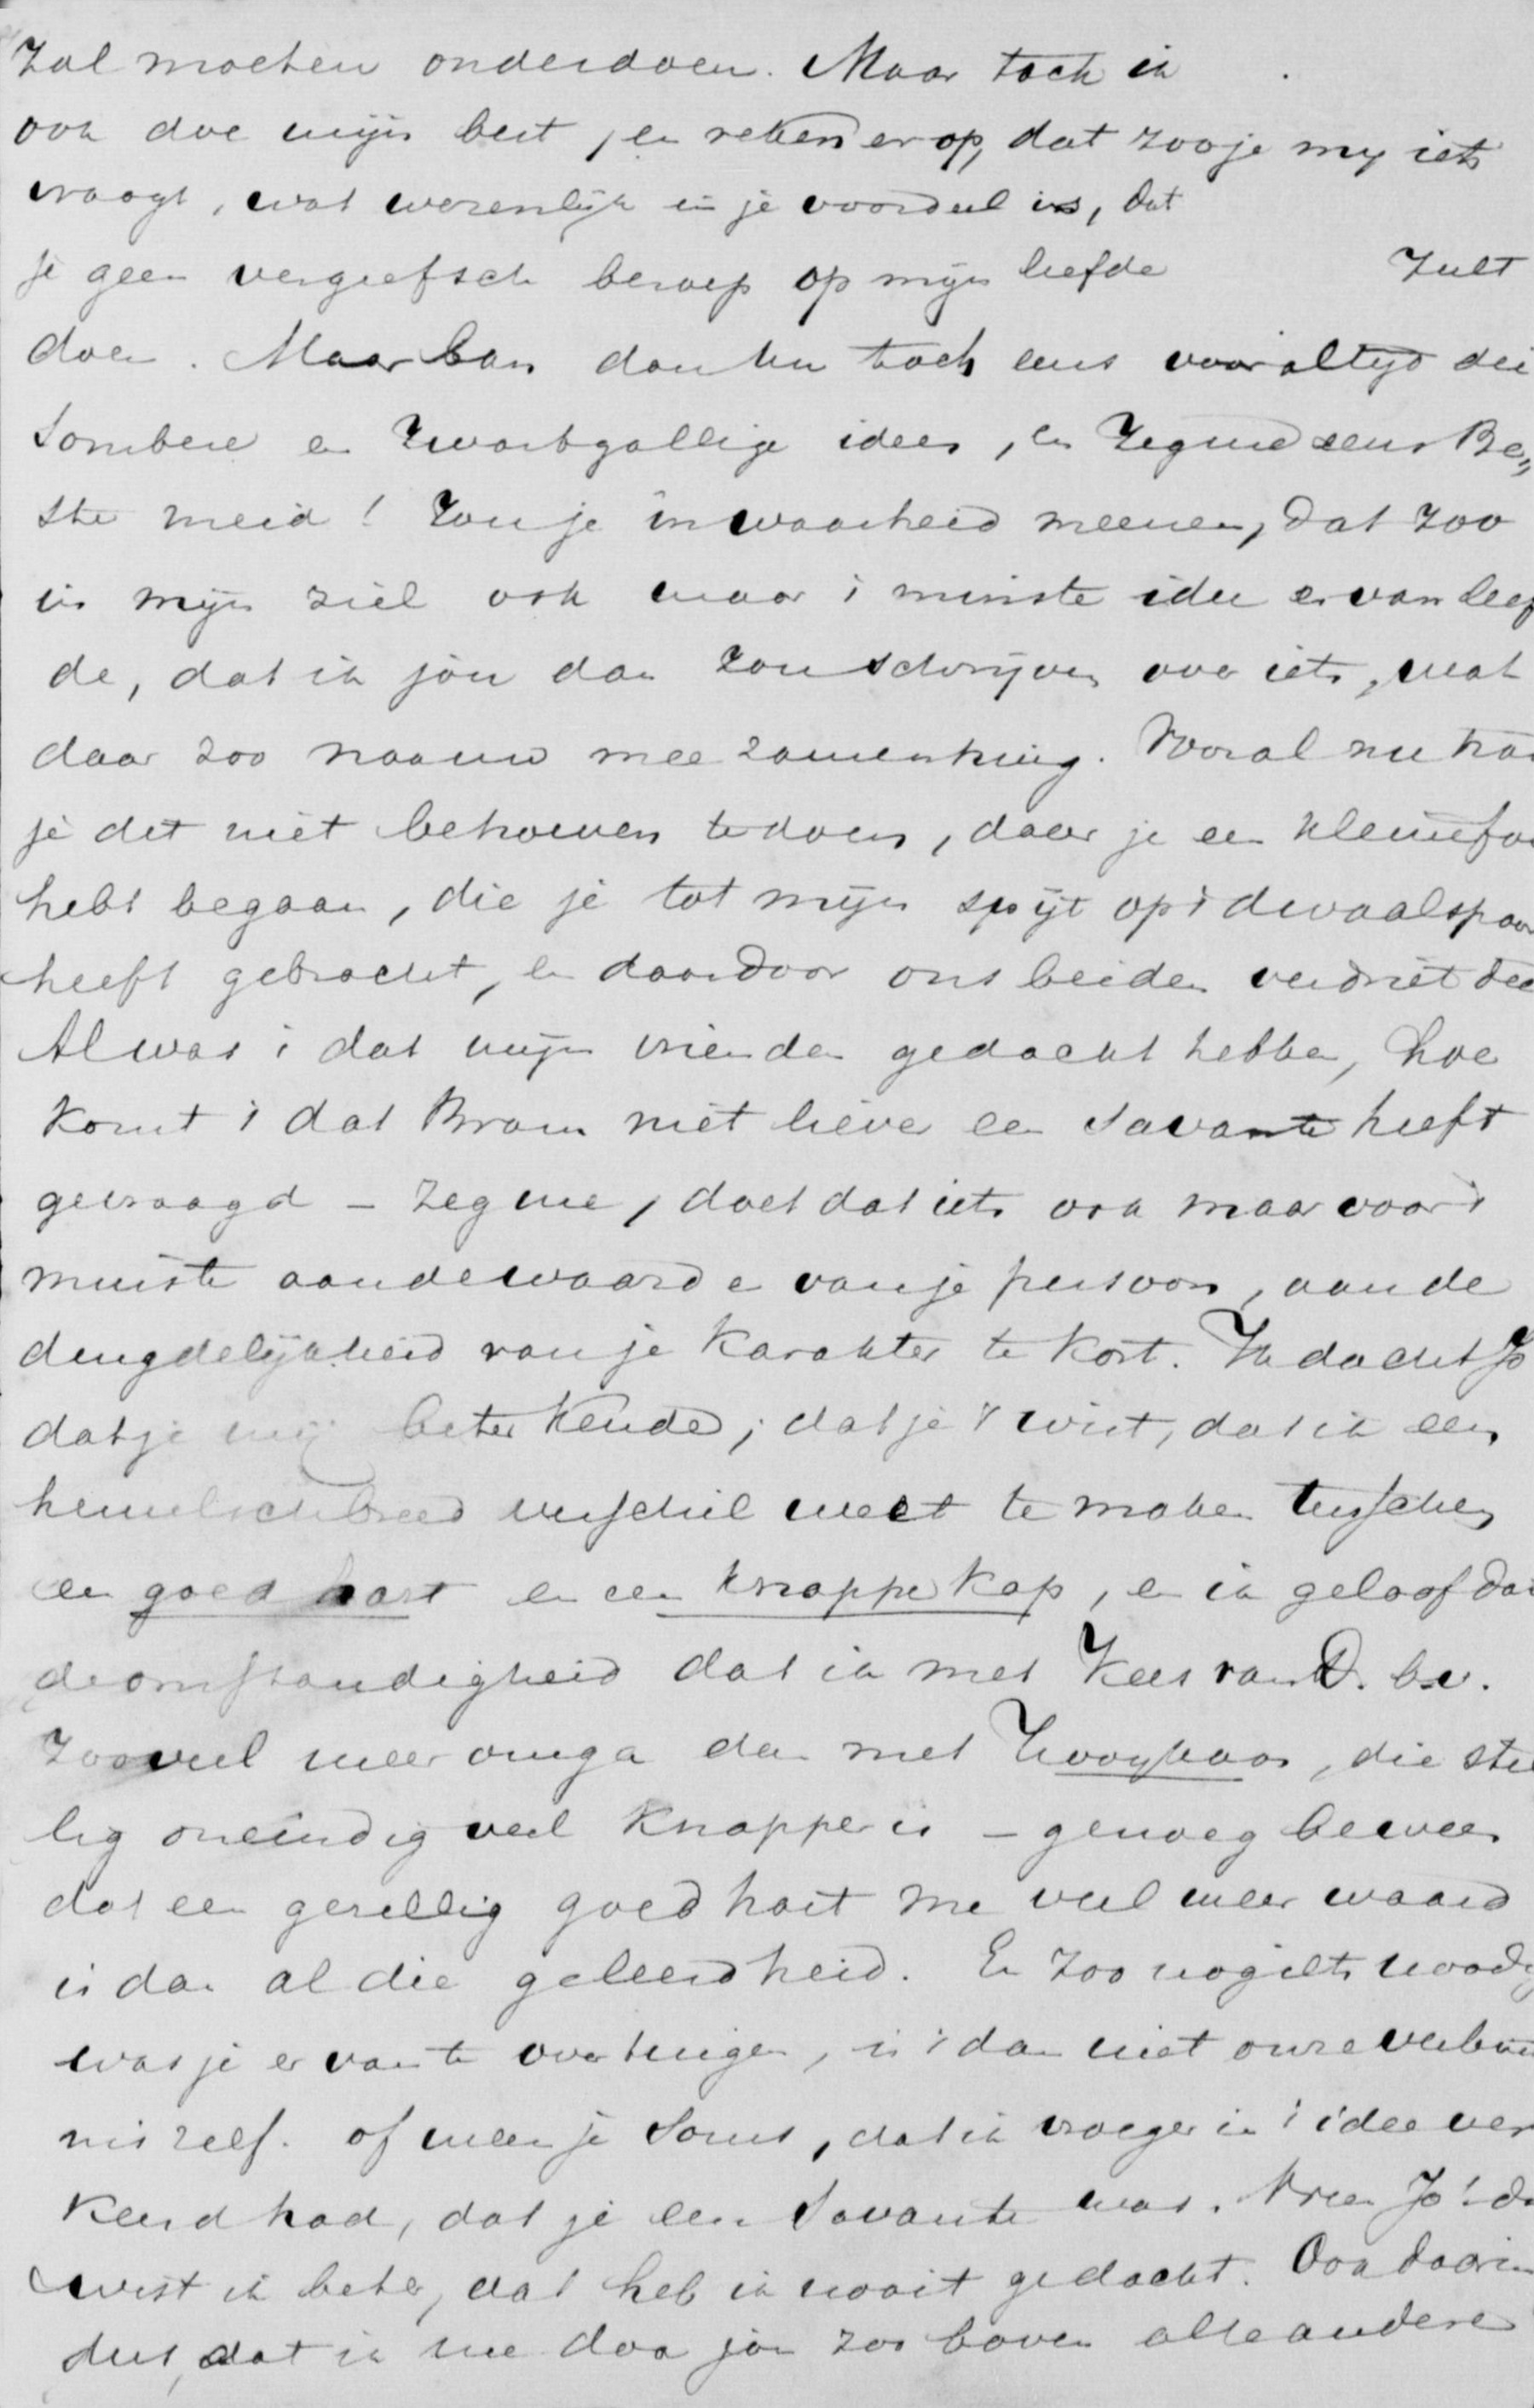 zal moeten onderdoen. Maar toch ik
ook doe mijn best, en reken er op, dat zoo je my iets
vraagt, wat wezenlijk in je voordeel is, dat
je geen vergeefsch beroep op mijn liefde zult
doen. Maar ban dan nu toch eens voor altyd die
sombere en zwartgallige ideen, en zeg me eens Be„
ste meid! Zou je in waarheid meenen, dat zoo
in mijn ziel ook maar 't minste idee er van leef
de, dat ik jou dan zou schrijven over iets, wat
daar zoo naauw mee zamenhing. Vooral nu had
je dit niet behoeven te doen, daar je een kleine fou
hebt begaan, die je tot mijn spijt op 't dwaalspoor
heeft gebracht, en daardoor ons beiden verdriet dee
Al was 't dat mijn vrienden gedacht hebben, hoe
komt 't dat Bram niet liever een savante heeft
gevraagd – zeg me, doet dat iets ook maar voor 't
minste aan de waarde van je persoon, aan de
deugdelijkheid van je karakter te kort. Ik dacht Jo
dat je mij beter kende; dat je 't wist, dat ik een
hemelschbreed verschil weet te maken tusschen
een goed hart en een knappe kop, en ik geloof dat
de omstandigheid dat ik met Kees van D. b.v.
zooveel meer omga dan met Hooykaas, die stel
lig oneindig veel knapper is – genoeg bewees
dat een gezellig goed hart me veel meer waard
is dan al die geleerdheid. En zoo nog iets noodig
was je er van te overtuigen, is 't dan niet onze verbin
nis zelf. of meen je soms, dat ik vroeger in 't idee ver
keerd had, dat je een Savante was. Neen Jo! da
wist ik beter, dat heb ik nooit gedacht. Ook daarin
dus, dat ik me door jou zoo boven alle andere